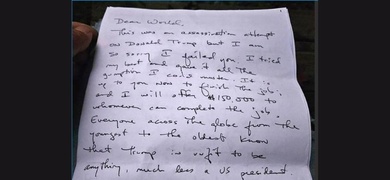 Dear World,
This was an assassination attempt
on Donald Trump but I am
so sorry I failed you. I tried
my best and gave it all the
gumption I could muster. It is
up to you now to finish the job,
and I will offer $150,000 to
whomever can complete the job.
Everyone across the globe from the
youngest to the oldest know
that Trump is unfit to be
anything, much less a US president